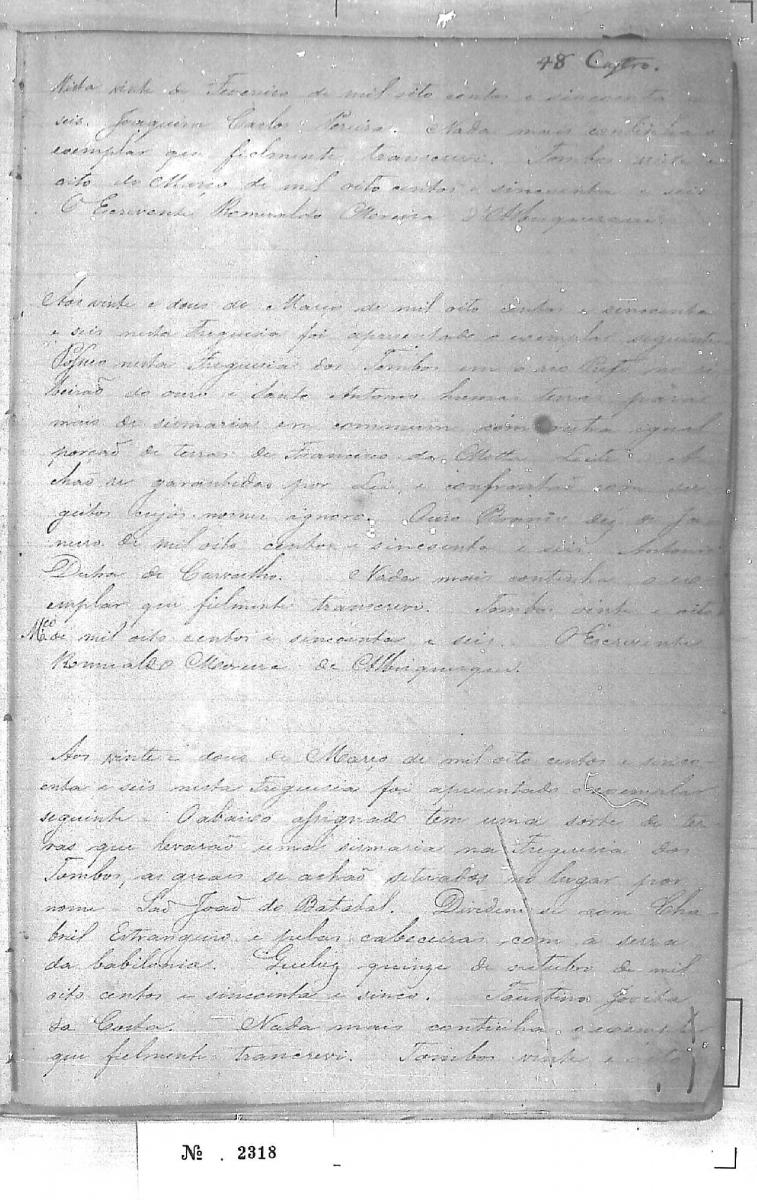 48 Castro.
vinte de Fevereiro de mil oito centos e sincoenta e
seis. Joaquim Carlos Pereira. Nada mais continha o
exemplar que fielmente transcrevi. Tombos vinte e
oito do Março de mil oito centos e sincoenta e seis
O Escrevente Romualdo Moreira d'Albuquerque.
Aos vinte e dous de Março de mil oito centos e sincoenta
e seis nesta Freguesia foi apresentado o exemplar seguinte
Posſuo nesta Freguesia dos Tombos em o no Ri
beirão do ouro e Santo Antonio humas terras para
mais de sismarias em commum com outra igual
porcão de terras de Francisco da Motta Leite. A
chão se garantidas por Lei, e confrontão com su
geitos cujos nomes ignoro. Ouro Branco dez de Ja
neiro de mil oito centos e sincoenta e seis. Antonio
Dutra de Carvalho. Nada mais continha o ex
emplar que fielmente transcrevi. Tombos vinte e oito
Mco de mil oito centos e sincoenta e seis. O Escrevente
Romualdo Moreira de Albuquerque.
Aos vinte e dous de Março de mil oito centos e sinco-
enta e seis nesta Freguesia foi apresentado o exemplar
seguinte. O abaixo asſignado tem uma sorte de ter
ras que levarão uma sismaria na Freguesia dos
Tombos, as quais se achão situadas no lugar por
nome São João do Batatal. Dividem se com Cha
bril Estrangeiro e pelas cabeceiras com a serra
da babilonia. Queluz quinze de outubro de mil
oito centos e sincoenta e sinco. Faustino Jovita
da Costa. Nada mais continha o exemplar
que fielmente trancrevi. Tombos vinte e oito
№ 2318